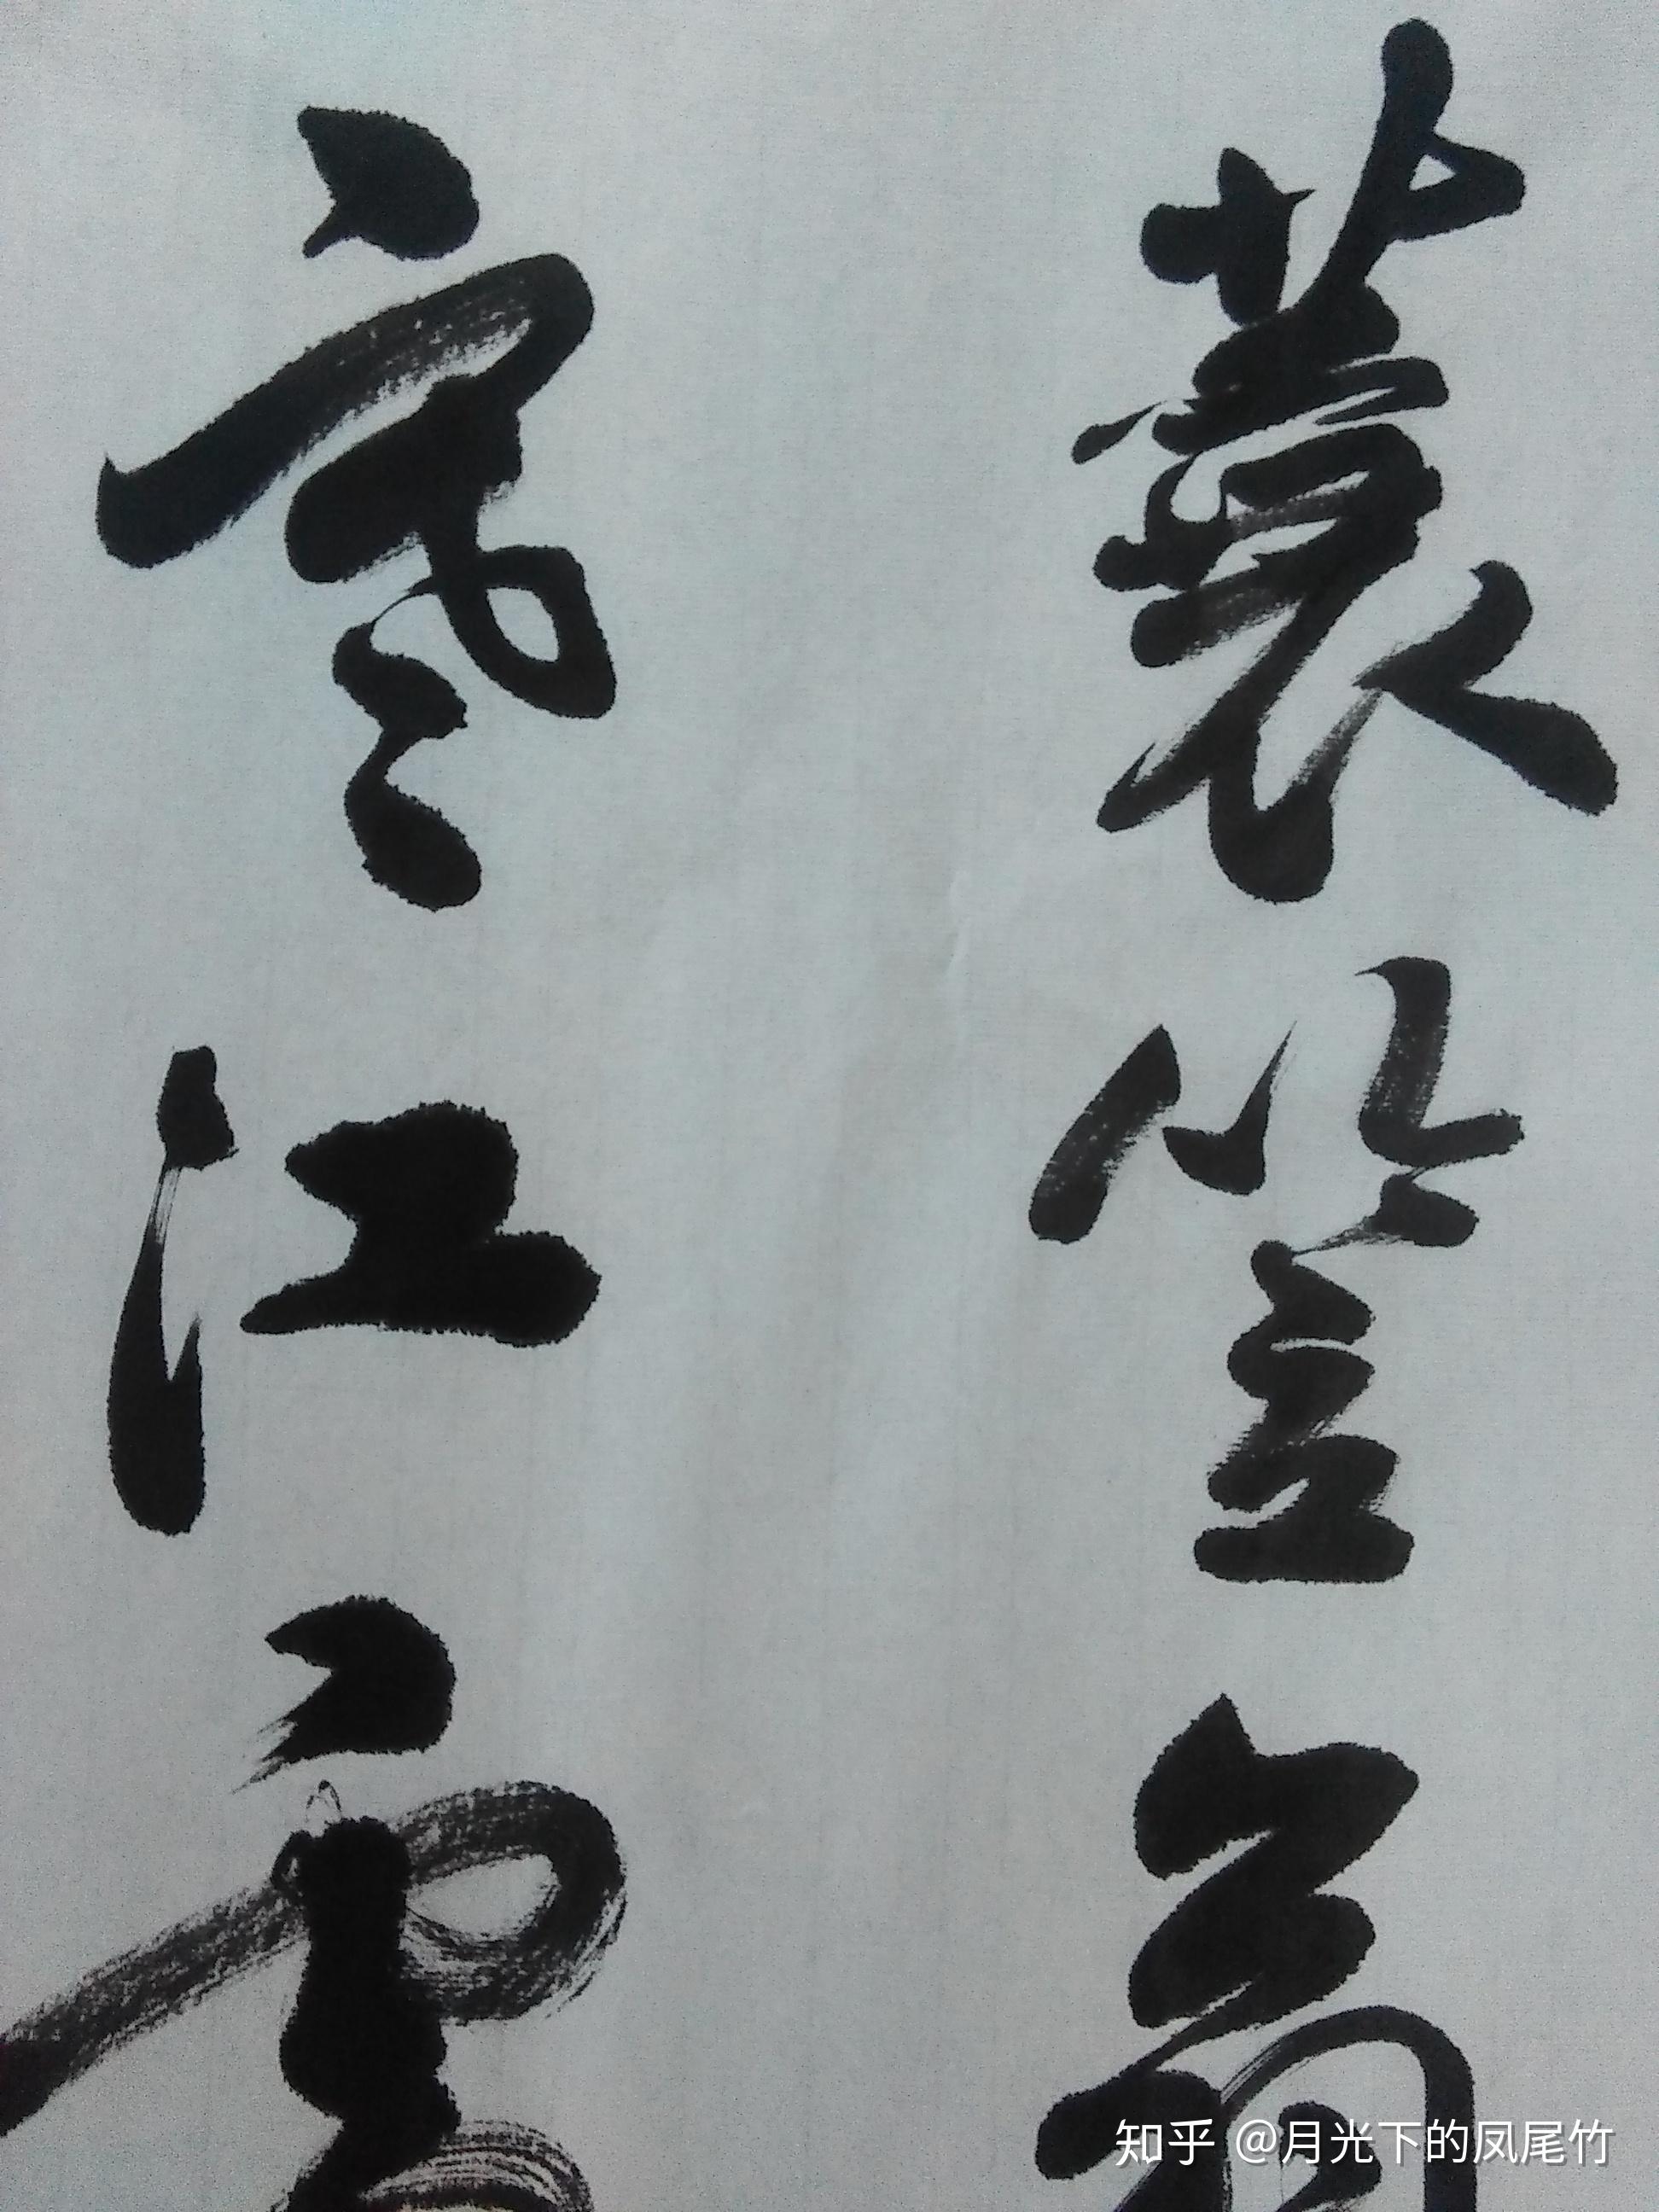 蓑笠翁
寒江雪
知乎 @月光下的凤尾竹